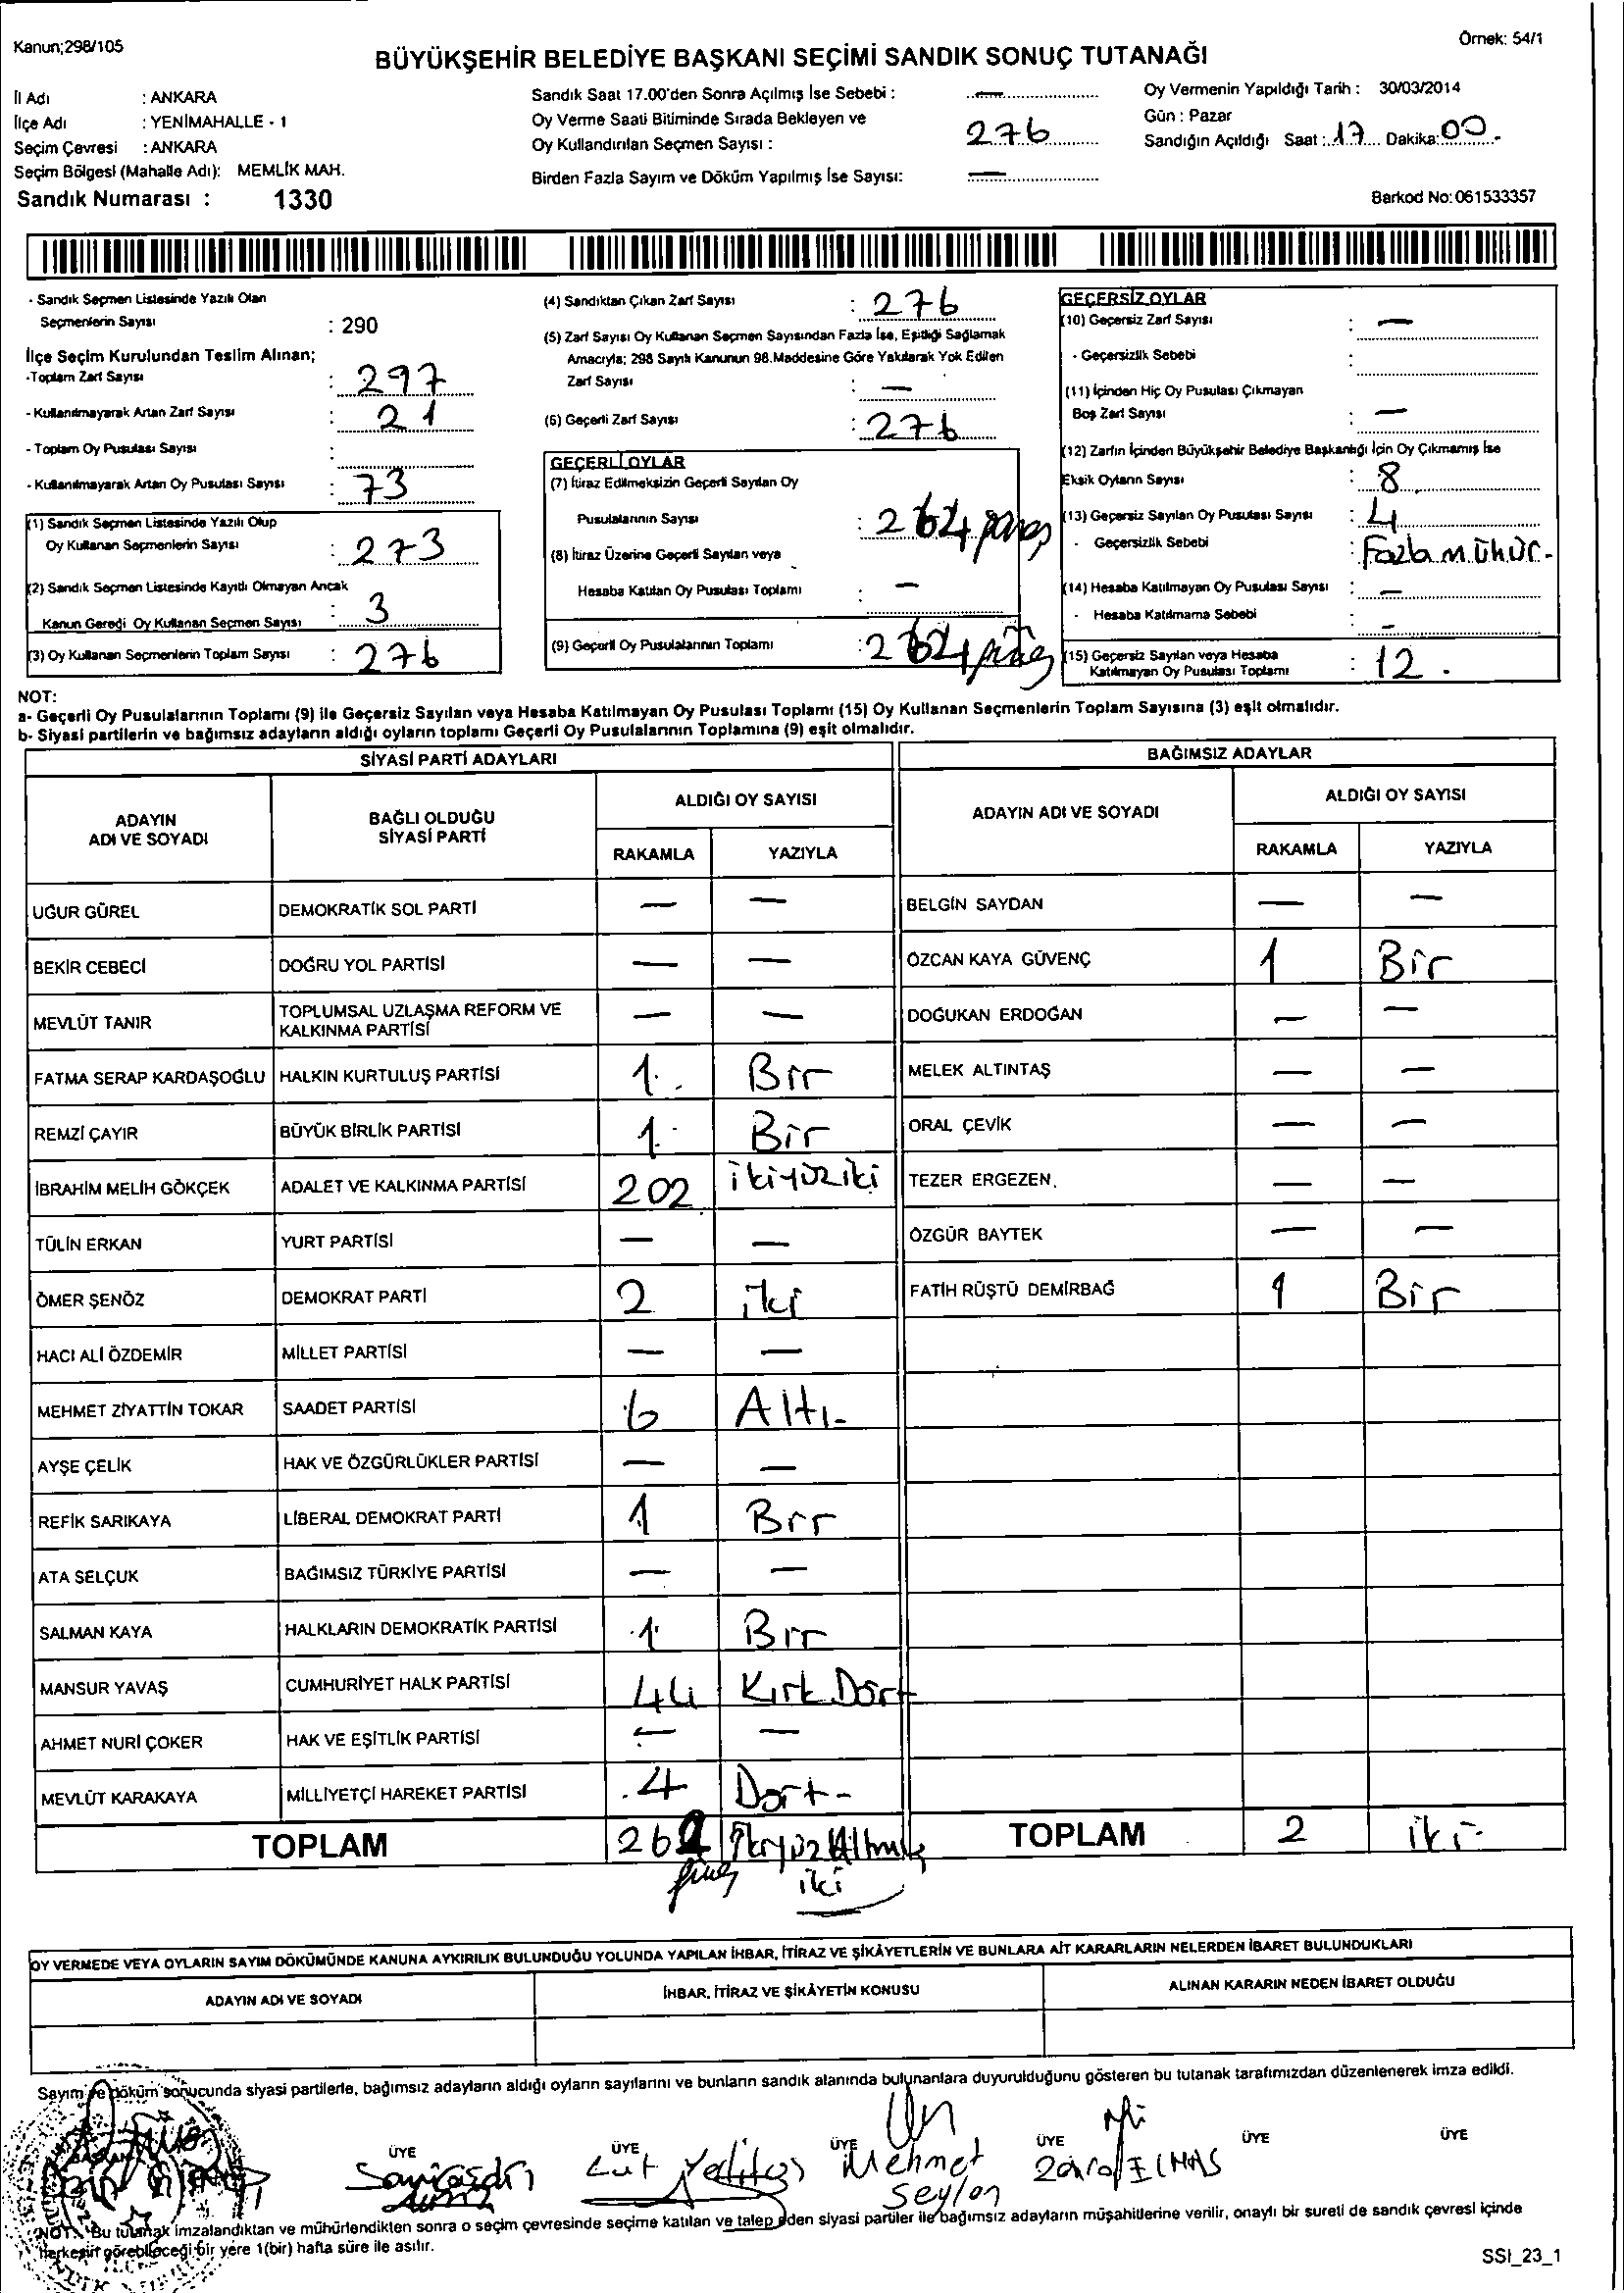 Kanun;298/105
Örnek: 54/1
BÜYÜKŞEHİR BELEDİYE BAŞKANI SEÇİMİ SANDIK SONUÇ TUTANAĞI
İl Adı : ANKARA
İlçe Adı : YENİMAHALLE - 1
Seçim Çevresi : ANKARA
Seçim Bölgesi (Mahalle Adı): MEMLİK MAH.
Sandık Numarası : 1330
Sandık Saat 17.00'den Sonra Açılmış İse Sebebi : —
Oy Verme Saati Bitiminde Sırada Bekleyen ve
Oy Kullandırılan Seçmen Sayısı : 276
Birden Fazla Sayım ve Döküm Yapılmış İse Sayısı: —
Oy Vermenin Yapıldığı Tarih : 30/03/2014
Gün : Pazar
Sandığın Açıldığı Saat : 17 Dakika: 00
Barkod No: 061533357
- Sandık Seçmen Listesinde Yazılı Olan
Seçmenlerin Sayısı : 290
İlçe Seçim Kurulundan Teslim Alınan;
-Toplam Zarf Sayısı : 297
- Kullanılmayarak Artan Zarf Sayısı : 21
- Toplam Oy Pusulası Sayısı :
- Kullanılmayarak Artan Oy Pusulası Sayısı : 73
(1) Sandık Seçmen Listesinde Yazılı Olup
Oy Kullanan Seçmenlerin Sayısı : 273
(2) Sandık Seçmen Listesinde Kayıtlı Olmayan Ancak
Kanun Gereği Oy Kullanan Seçmen Sayısı : 3
(3) Oy Kullanan Seçmenlerin Toplam Sayısı : 276
(4) Sandıktan Çıkan Zarf Sayısı : 276
(5) Zarf Sayısı Oy Kullanan Seçmen Sayısından Fazla İse, Eşitliği Sağlamak
Amacıyla; 298 Sayılı Kanunun 98.Maddesine Göre Yakılarak Yok Edilen
Zarf Sayısı : —
(6) Geçerli Zarf Sayısı : 276
GEÇERLİ OYLAR
(7) İtiraz Edilmeksizin Geçerli Sayılan Oy
Pusulalarının Sayısı : 264
(8) İtiraz Üzerine Geçerli Sayılan veya
Hesaba Katılan Oy Pusulası Toplamı : —
(9) Geçerli Oy Pusulalarının Toplamı : 264
GEÇERSİZ OYLAR
(10) Geçersiz Zarf Sayısı : —
- Geçersizlik Sebebi :
(11) İçinden Hiç Oy Pusulası Çıkmayan
Boş Zarf Sayısı : —
(12) Zarfın İçinden Büyükşehir Belediye Başkanlığı İçin Oy Çıkmamış İse
Eksik Oyların Sayısı : 8
(13) Geçersiz Sayılan Oy Pusulası Sayısı : 4
- Geçersizlik Sebebi : Fazla mühür-
(14) Hesaba Katılmayan Oy Pusulası Sayısı : —
- Hesaba Katılmama Sebebi : —
(15) Geçersiz Sayılan veya Hesaba
Katılmayan Oy Pusulası Toplamı : 12.
NOT:
a- Geçerli Oy Pusulalarının Toplamı (9) ile Geçersiz Sayılan veya Hesaba Katılmayan Oy Pusulası Toplamı (15) Oy Kullanan Seçmenlerin Toplam Sayısına (3) eşit olmalıdır.
b- Siyasi partilerin ve bağımsız adayların aldığı oyların toplamı Geçerli Oy Pusulalarının Toplamına (9) eşit olmalıdır.
SİYASİ PARTİ ADAYLARI
ADAYIN ADI VE SOYADI BAĞLI OLDUĞU SİYASİ PARTİ ALDIĞI OY SAYISI
RAKAMLA YAZIYLA
UĞUR GÜREL DEMOKRATİK SOL PARTİ — —
BEKİR CEBECİ DOĞRU YOL PARTİSİ — —
MEVLÜT TANIR TOPLUMSAL UZLAŞMA REFORM VE KALKINMA PARTİSİ — —
FATMA SERAP KARDAŞOĞLU HALKIN KURTULUŞ PARTİSİ 1 Bir
REMZİ ÇAYIR BÜYÜK BİRLİK PARTİSİ 1 Bir
İBRAHİM MELİH GÖKÇEK ADALET VE KALKINMA PARTİSİ 202 ikiyüziki
TÜLİN ERKAN YURT PARTİSİ — —
ÖMER ŞENÖZ DEMOKRAT PARTİ 2 iki
HACI ALİ ÖZDEMİR MİLLET PARTİSİ — —
MEHMET ZİYATTİN TOKAR SAADET PARTİSİ 6 Altı-
AYŞE ÇELİK HAK VE ÖZGÜRLÜKLER PARTİSİ — —
REFİK SARIKAYA LİBERAL DEMOKRAT PARTİ 1 Bir
ATA SELÇUK BAĞIMSIZ TÜRKİYE PARTİSİ — —
SALMAN KAYA HALKLARIN DEMOKRATİK PARTİSİ 1 Bir
MANSUR YAVAŞ CUMHURİYET HALK PARTİSİ 44 Kırk Dört
AHMET NURİ ÇOKER HAK VE EŞİTLİK PARTİSİ — —
MEVLÜT KARAKAYA MİLLİYETÇİ HAREKET PARTİSİ 4 Dört-
TOPLAM 262 ikiyüz Altmış iki
BAĞIMSIZ ADAYLAR
ADAYIN ADI VE SOYADI ALDIĞI OY SAYISI
RAKAMLA YAZIYLA
BELGİN SAYDAN — —
ÖZCAN KAYA GÜVENÇ 1 Bir
DOĞUKAN ERDOĞAN — —
MELEK ALTINTAŞ — —
ORAL ÇEVİK — —
TEZER ERGEZEN — —
ÖZGÜR BAYTEK — —
FATİH RÜŞTÜ DEMİRBAĞ 1 Bir
TOPLAM 2 iki
OY VERMEDE VEYA OYLARIN SAYIM DÖKÜMÜNDE KANUNA AYKIRILIK BULUNDUĞU YOLUNDA YAPILAN İHBAR, İTİRAZ VE ŞİKÂYETLERİN VE BUNLARA AİT KARARLARIN NELERDEN İBARET BULUNDUKLARI
ADAYIN ADI VE SOYADI İHBAR, İTİRAZ VE ŞİKÂYETİN KONUSU ALINAN KARARIN NEDEN İBARET OLDUĞU
Sayım ve döküm sonucunda siyasi partilerle, bağımsız adayların aldığı oyların sayılarını ve bunların sandık alanında bulunanlara duyurulduğunu gösteren bu tutanak tarafımızdan düzenlenerek imza edildi.
BAŞKAN ÜYE ÜYE ÜYE ÜYE ÜYE ÜYE
Mehmet
Seylan
NOT: Bu tutanak imzalandıktan ve mühürlendikten sonra o seçim çevresinde seçime katılan ve talep eden siyasi partiler ile bağımsız adayların müşahitlerine verilir, onaylı bir sureti de sandık çevresi içinde
herkesin görebileceği bir yere 1(bir) hafta süre ile asılır.
SSI_23_1